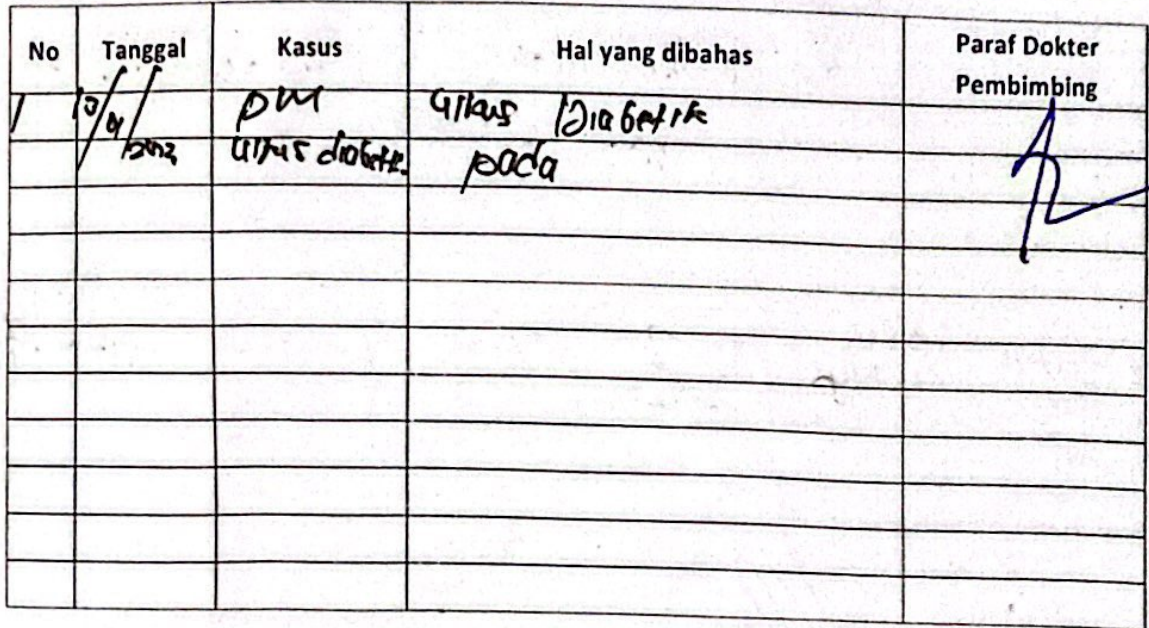 No Tanggal Kasus Hal yang dibahas Paraf Dokter
Pembimbing
1 DM Ulkus Diabetik
Ulkus diabetik pada